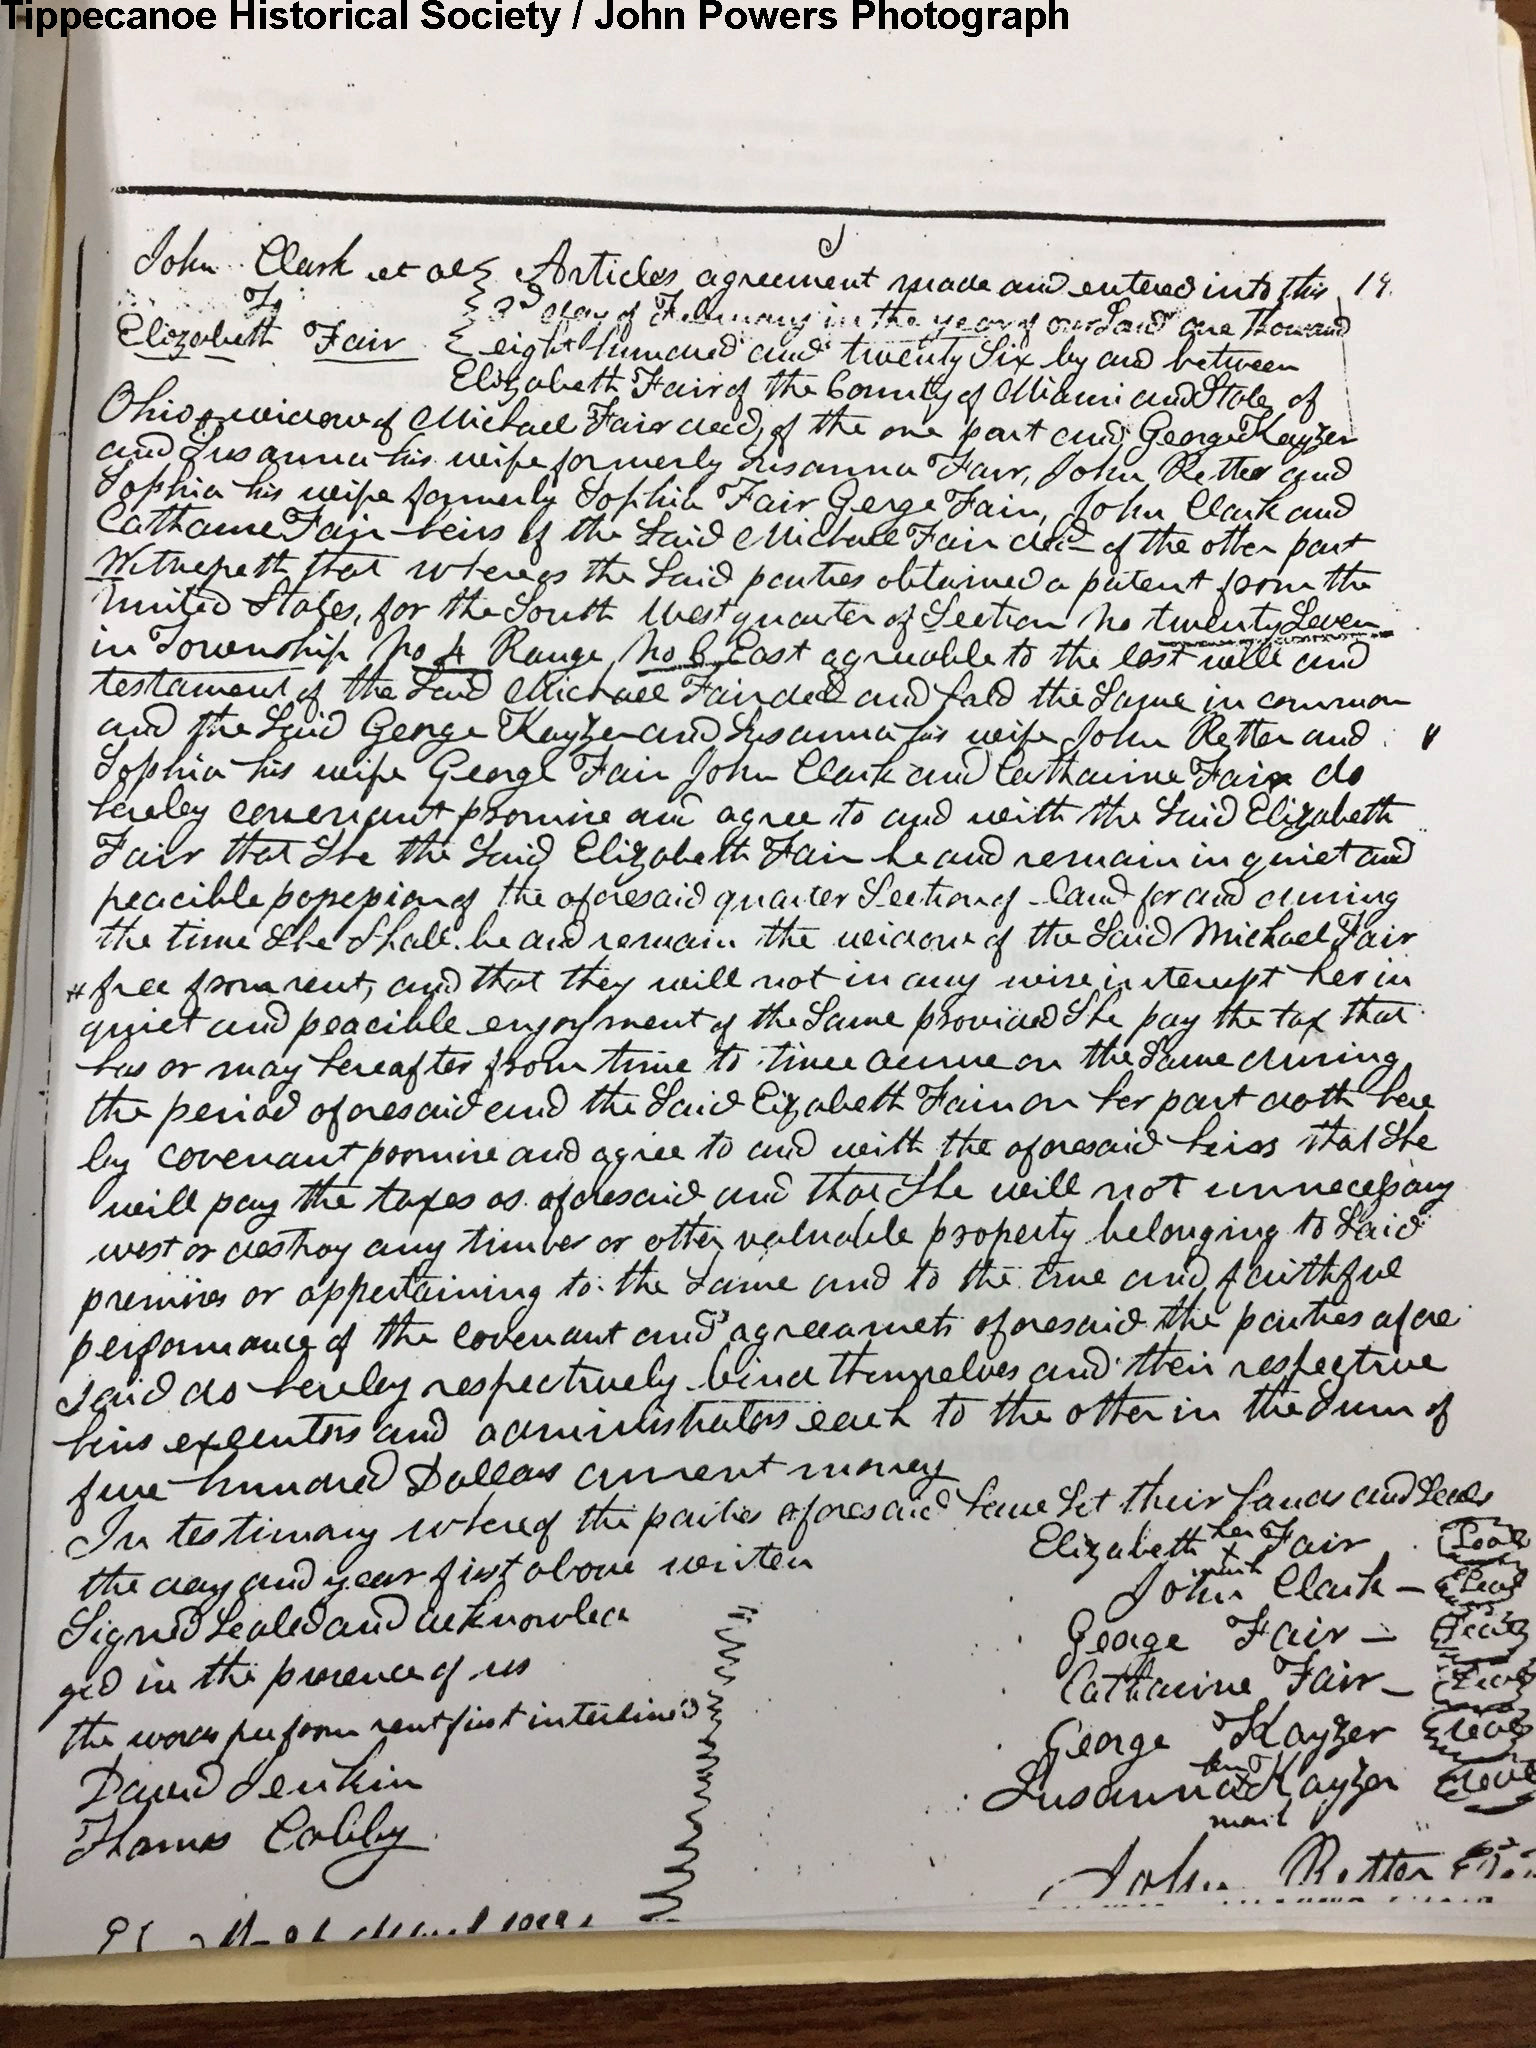 Tippecanoe Historical Society / John Powers Photograph
John Clark et al Articles agreement made and entered into this 19.
To 3d day of February in the year of our Lord one thousand
Elizabeth Fair eight hundred and twenty Six by and between
Elizabeth Fair of the County of Miami and State of
Ohio widow of Michael Fair decd, of the one part and George Kayzer
and Susanna his wife formerly Susanna Fair, John Retter and
Sophia his wife formerly Sophia Fair Gerge Fair, John Clark and
Catharine Fair heirs of the Said Michael Fair decd of the other part
Witnesseth that whereas the Said parties obtained a patent from the
United States, for the South West quarter of Section No twenty Seven
in Township No 4 Range No 6 East agreeable to the last will and
testament of the Said Michael Fair decd and hold the Same in common
and the Said George Kayzer and Susanna his wife John Retter and
Sophia his wife George Fair John Clark and Catharine Fair do
hereby covenant promise and agree to and with the Said Elizabeth
Fair that She the Said Elizabeth Fair be and remain in quiet and
peacible possession of the aforesaid quarter Section of land for and during
the time She Shall be and remain the widow of the Said Michael Fair
# free from rent, and that they will not in any wise interupt her in
quiet and peacible enjoyment of the Same provided She pay the tax that
has or may hereafter from time to time acrue on the Same during
the period aforesaid and the Said Elizabeth Fair on her part doth here
by covenant promise and agree to and with the aforesaid heirs that She
will pay the taxes as aforesaid and that She will not unnecessary
west or destroy any timber or other valuable property belonging to Said
premises or appertaining to the Same and to the true and faithful
performance of the covenant and agreements aforesaid the parties afore
said do hereby respectively bind themselves and their respective
heirs executors and administrators each to the other in the Sum of
five hundred Dollars current money
In testimony whereof the parties aforesaid have Set their hands and Seals
the day and year first above written
Elizabeth her x mark Fair Seal
John Clark Seal
Signed Sealed and acknowled
George Fair Seal
ged in the presence of us
Catharine Fair Seal
the words free from rent first interlined
George Kayzer Seal
David Jenkin
Susanna her x mark Kayzer Seal
Thomas Cobby
John Retter